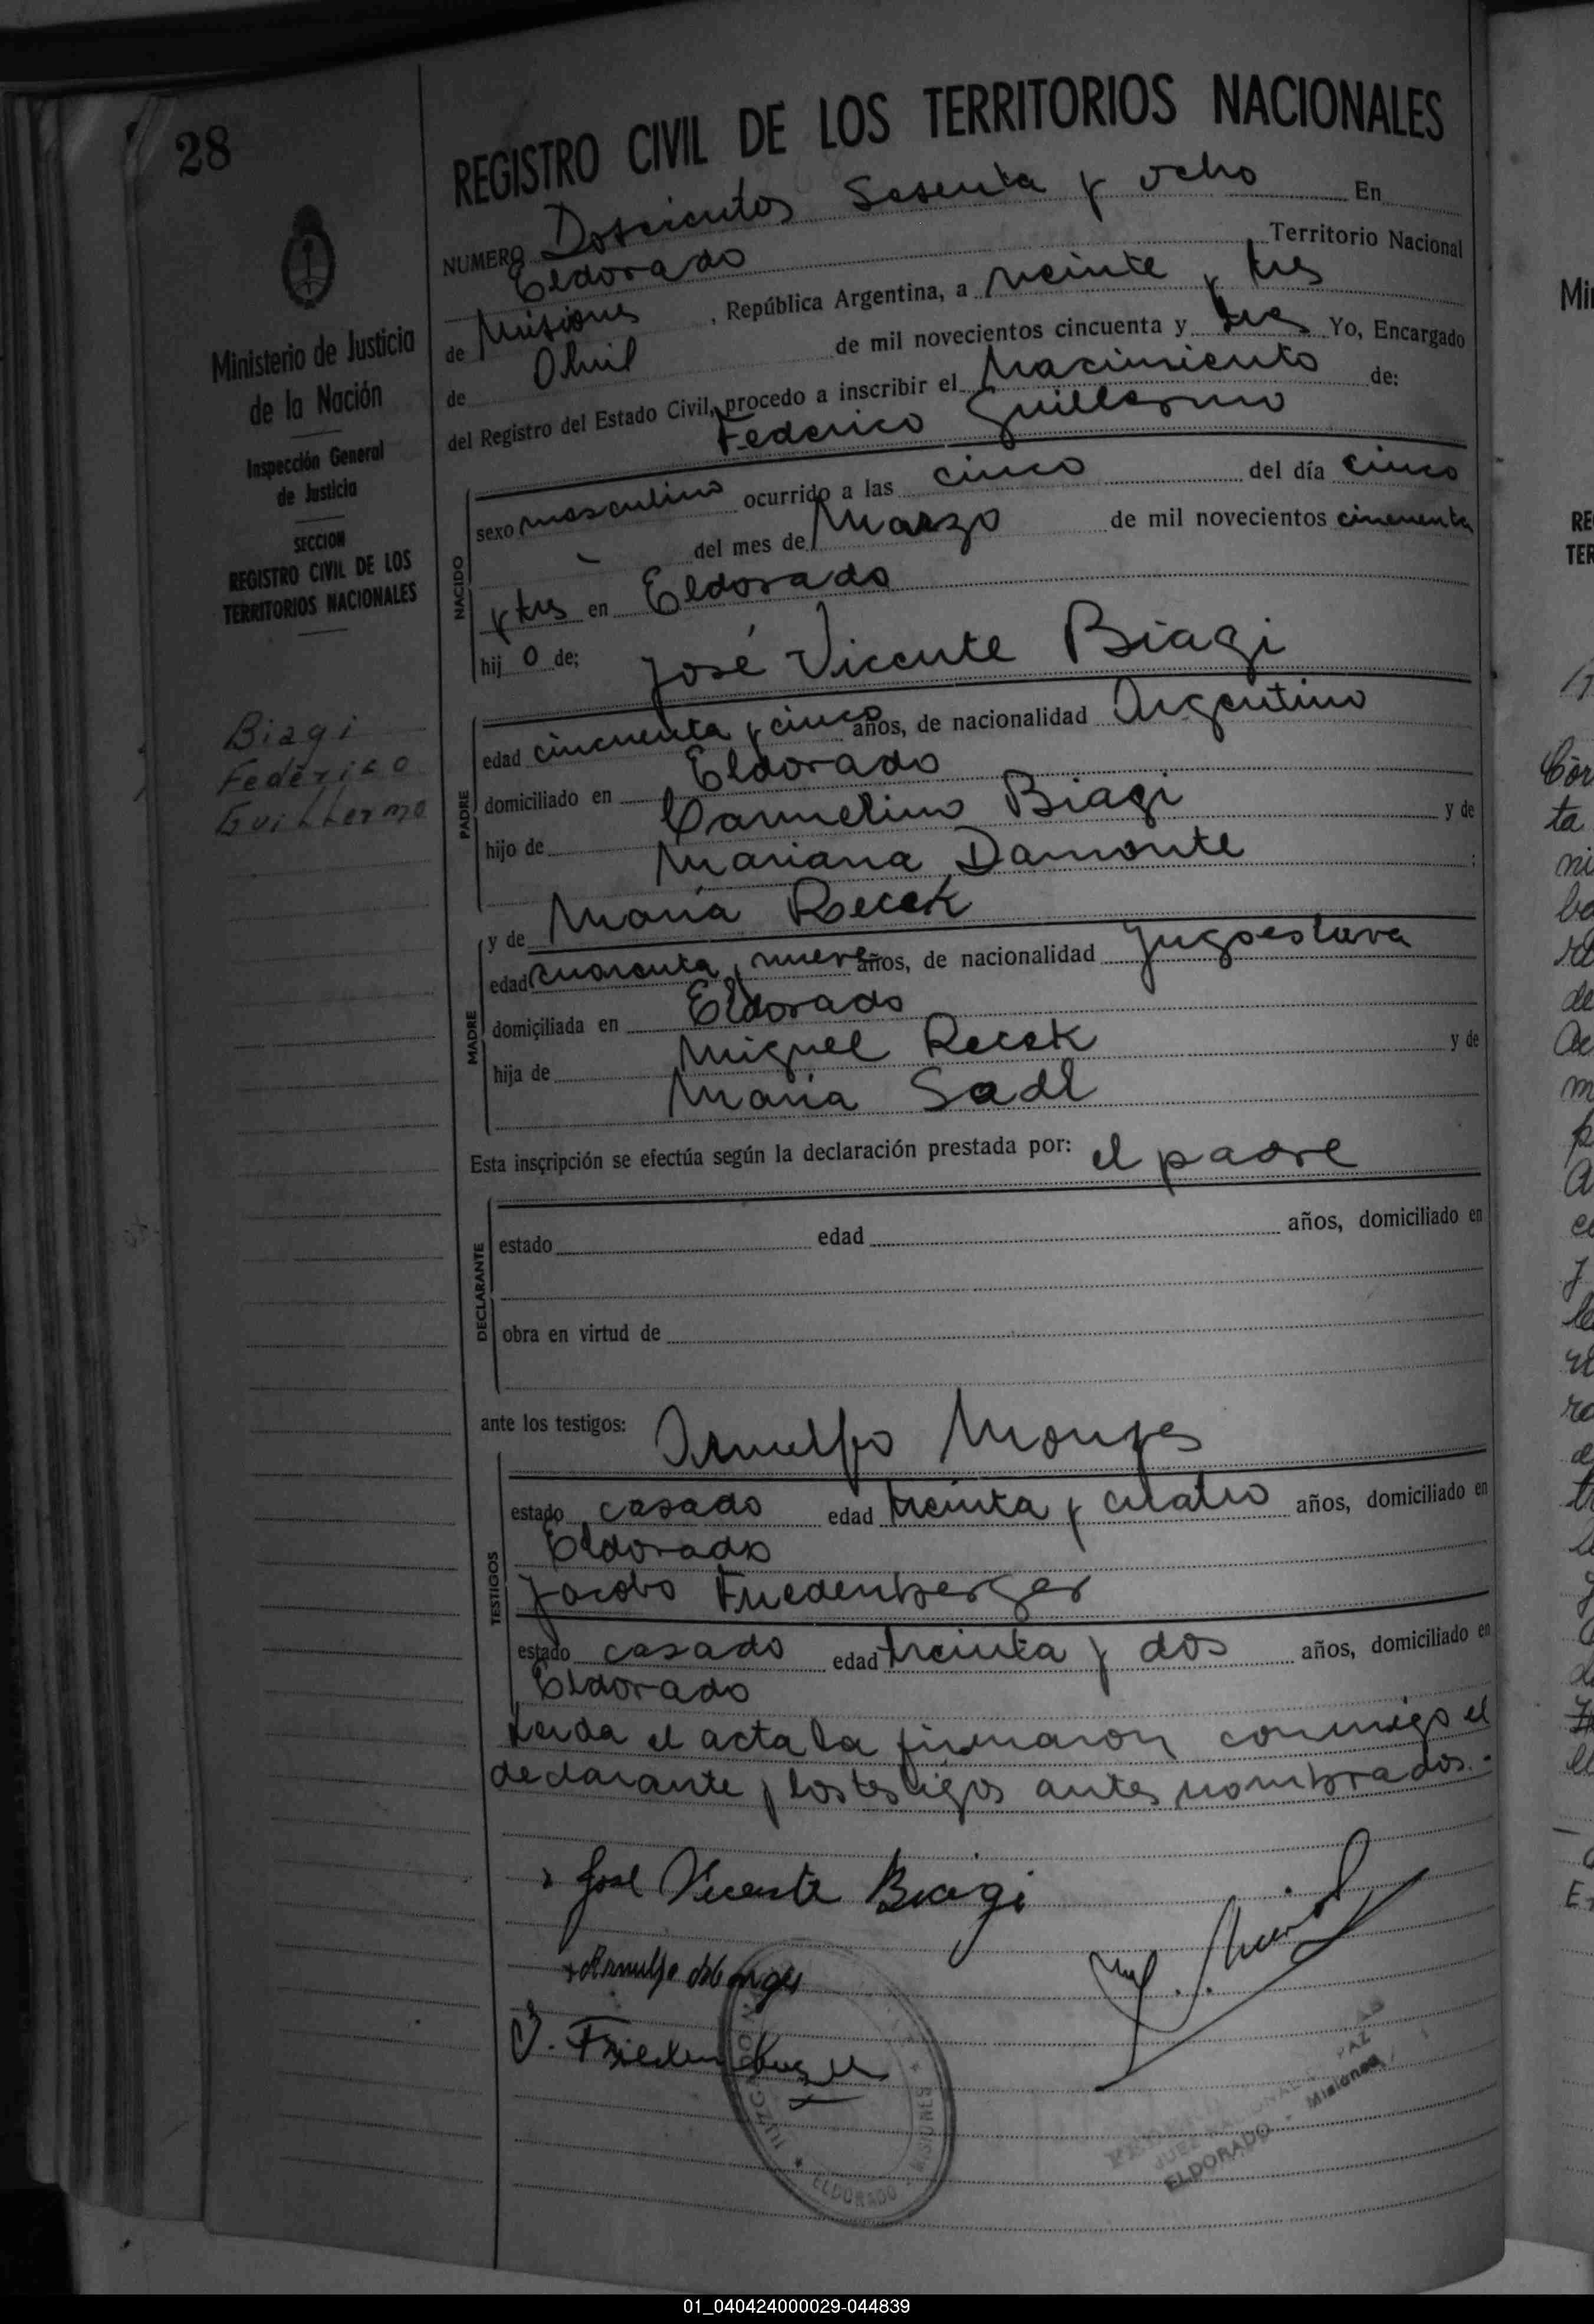 28
REGISTRO CIVIL DE LOS TERRITORIOS NACIONALES
NUMERO Doscientos Sesenta y ocho En
Eldorado Territorio Nacional
de Misiones, República Argentina, a veinte y tres
de Abril de mil novecientos cincuenta y tres Yo, Encargado
del Registro del Estado Civil, procedo a inscribir el Nacimiento de:
Federico Guillermo
Ministerio de Justicia
de la Nación
Inspección General
de Justicia
SECCION
REGISTRO CIVIL DE LOS
TERRITORIOS NACIONALES
Biagi
Federico
Guillermo
NACIDO
sexo masculino ocurrido a las cinco del día cinco
del mes de Marzo de mil novecientos cincuenta
y tres en Eldorado
hij o de; José Vicente Biagi
PADRE
edad cincuenta y cinco años, de nacionalidad Argentino
domiciliado en Eldorado
hijo de Carmelino Biagi y de
Mariana Damonte ;
y de María Recek
MADRE
edad cuarenta y nueve años, de nacionalidad Yugoeslava
domiciliada en Eldorado
hija de Miguel Recek y de
María Sadl
Esta inscripción se efectúa según la declaración prestada por: el padre
DECLARANTE
estado edad años, domiciliado en
obra en virtud de
ante los testigos: Arnulfo Monges
TESTIGOS
estado casado edad treinta y cuatro años, domiciliado en
Eldorado
Jacobo Friedenberger
estado casado edad treinta y dos años, domiciliado en
Eldorado
Leida el acta la firmaron conmigo el
declarante y los testigos antes nombrados.-
José Vicente Biagi
Arnulfo Monges
J. Friedenberger
JUZGADO
ELDORADO MISIONES
PAZ
ELDORADO - Misiones
01_040424000029-044839